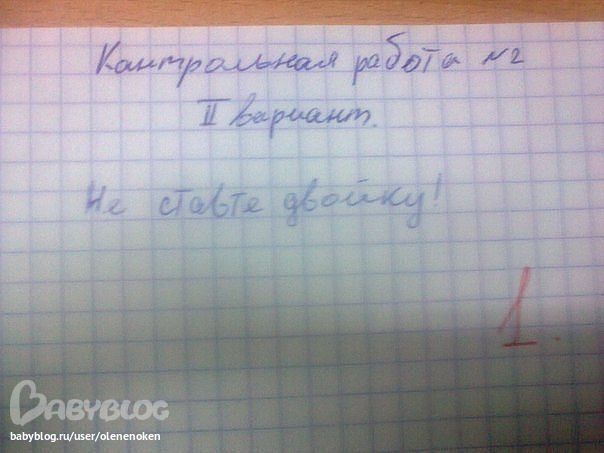 Кантрольная работа №2
II вариант.
Не ставте двойку!
1.
BABYBLOG
babyblog.ru/user/olenenoken